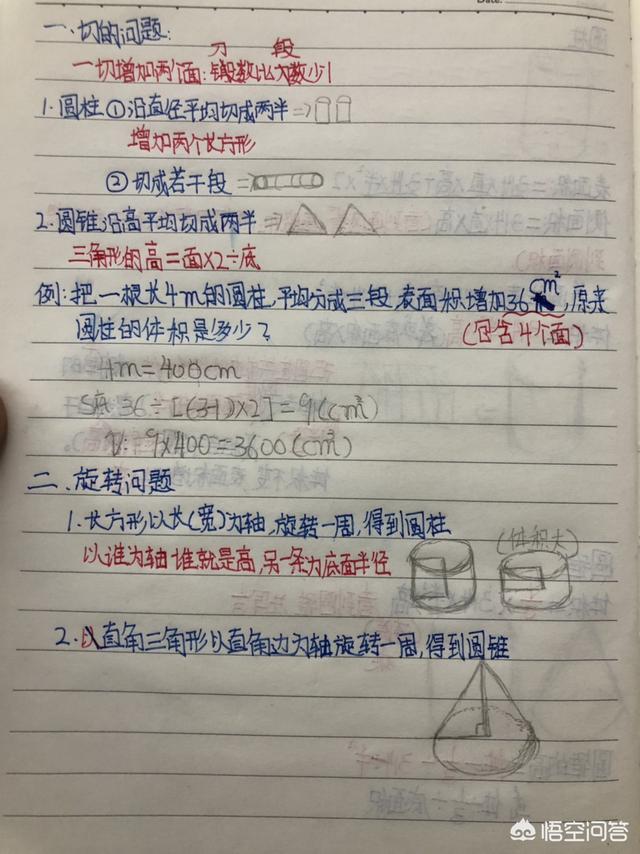 Date.
一.切的问题:
刀 段
一切增加两个面:段数比次数少1
1.圆柱①沿直径平均切成两半⇒
增加两个长方形
②切成若干段⇒
2.圆锥沿高平均切成两半⇒
三角形的高=面×2÷底
例:把一根长4m的圆柱,平均分成三段,表面积增加36cm²,原来
圆柱的体积是多少?
(包含4个面)
4m=400cm
S底:36÷[(3-1)×2]=9(cm²)
V:9×400=3600(cm³)
二.旋转问题
1.长方形以长(宽)为轴,旋转一周,得到圆柱
以谁为轴谁就是高,另一条为底面半径
(体积大)
2.以直角三角形以直角边为轴旋转一周,得到圆锥
悟空问答